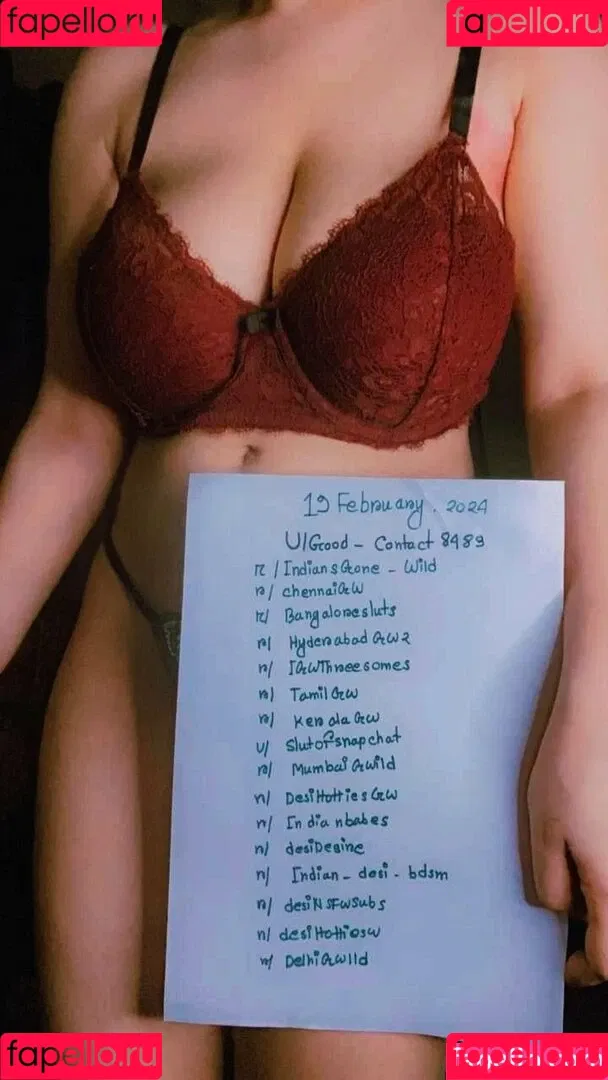 fapello.ru fapello.ru
19 February. 2024
U/Good - Contact 8483
r/IndiansGone - Wild
r/chennaiGW
r/Bangaloresluts
r/ Hyderabad GW2
r/ IGWThreesomes
r/ Tamil GW
r/ Kerala GW
u/ slutofsnapchat
r/ Mumbai Gwild
r/ DesiHottiesGW
r/ Indianbabes
r/ desiDesire
r/ Indian_desi_bdsm
r/ desiNSFWSubs
r/ desiHottiesw
r/ DelhiGWild
fapello.ru fapello.ru